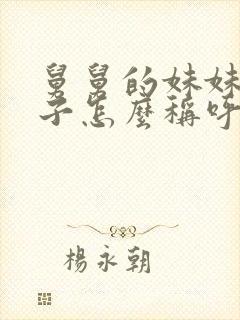 舅舅的妹妹
子怎麼稱呼
楊永朝